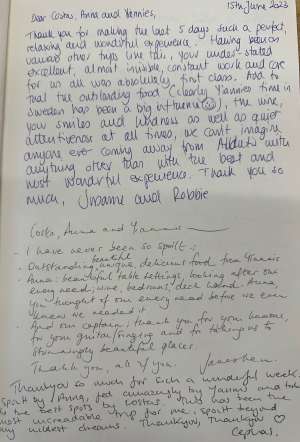 15th June 2023
Dear Costas, Anna and Yiannies,
Thank you for making the last 5 days such a perfect,
relaxing and wonderful experience. Having been on
various other trips like this, your under-stated
excellent, almost invisible, constant work and care
for us all was absolutely first class. Add to
that the outstanding food (clearly Yiannies time in
Sweden has been a big influence), the wine,
your smiles and kindness as well as quiet
attentiveness at all times, we can't imagine
anyone ever coming away from with
anything other than with the best and
most wonderful experience. Thank you so
much, Joanne and Robbie
Costa, Anna and Yiannis
- I have never been so spoilt:
- Outstanding, beautiful unique, delicious food from Yiannis
- Anna: beautiful table settings, looking after our
every need; wine, bedrooms, deck Anna,
you thought of our every need before we even
knew we needed it
- And our captain, thank you for your humour,
for your guitar/singing and for taking us to
stunningly beautiful places.
Thank you, all of you.
Thankyou so much for such a wonderful week.
Spoilt by Anna, fed amazingly by Yiannis and
to the best spots by Costas. This has been the
most incredible trip for me, spoilt beyond
my wildest dreams. Thankyou, Thankyou